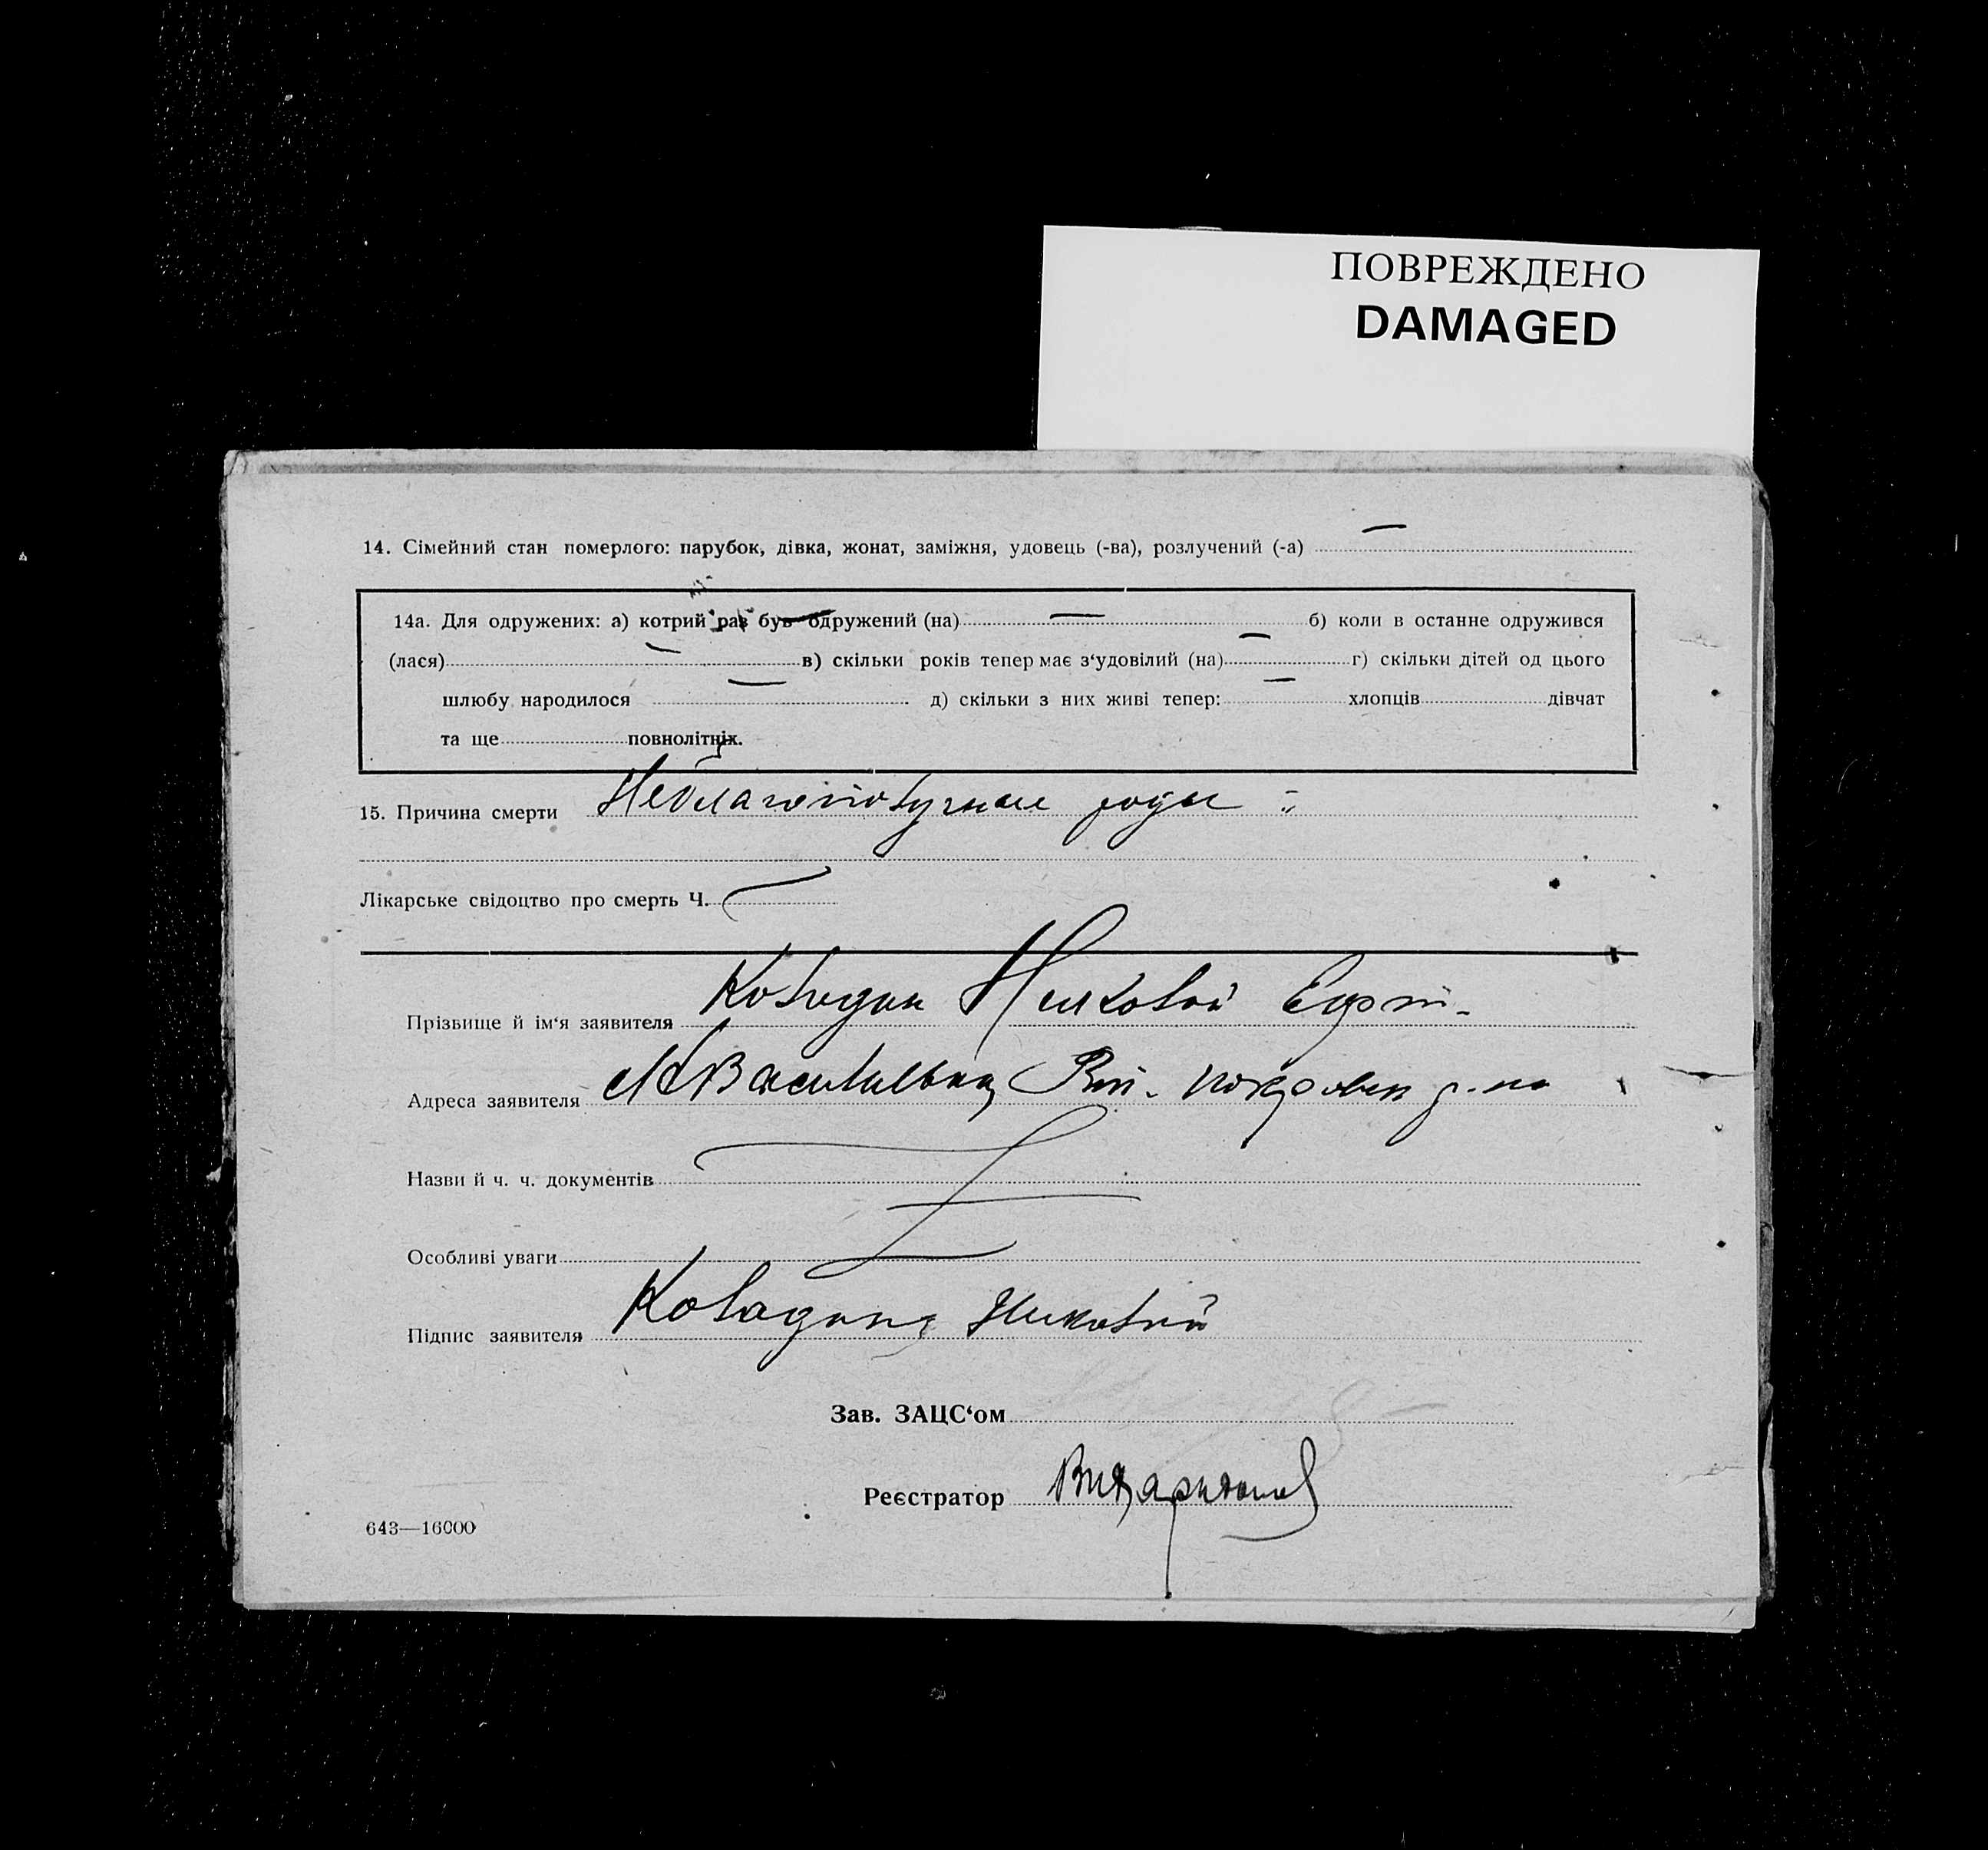 ПОВРЕЖДЕНО
DAMAGED
14. Сімейний стан померлого: парубок, дівка, жонат, заміжня, удовець (-ва), розлучений (-а) —
14а. Для одружених: а) котрий раз був одружений (на) — б) коли в останне одружився
(лася) — в) скільки років тепер має з‘удовілий (на) — г) скільки дітей од цього
шлюбу народилося — д) скільки з них живі тепер: — хлопців дівчат
та ще повнолітніх.
15. Причина смерти Неблагополучные роды
Лікарське свідоцтво про смерть Ч.
Прізвище й ім‘я заявителя
Адреса заявителя
Назви й ч. ч. документів
Особливі уваги
Підпис заявителя
Зав. ЗАЦС‘ом
Реєстратор
643—16000